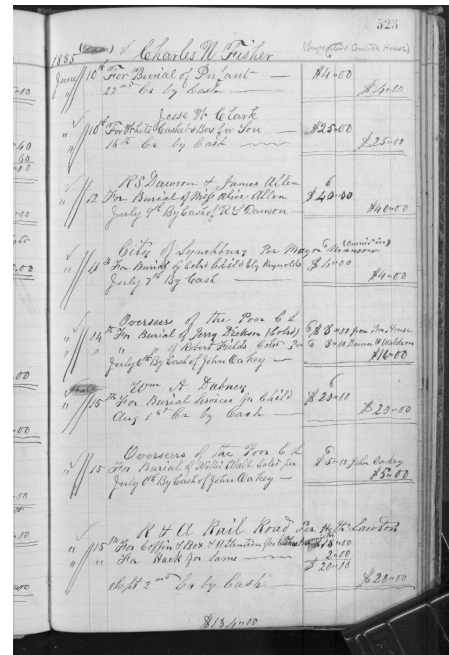 523
1885 Charles N Fisher (Control House)
June 10th For Burial of Infant — $4.00
22nd Cr by Cash — $4.00
Jesse N Clark
" 10th For White Casket & Box for Son — $25.00
16th Cr by Cash — $25.00
R S Dawson & James Allen
" 12 For Burial of Miss Alice Allen $40.00
July 9th By Cash of R S Dawson — $40.00
City of Lynchburg Per Mayor Manson
" 11th For Burial of Cold Child Reynolds $4.00
July 7th By Cash — $4.00
Overseers of the Poor C L
" 14th For Burial of Jerry Dickson (Cold) $8.00 Poor House
" " of Robert Fields Cold Per 8.00
July 6th By Cash of John Oakey — $16.00
Wm A Dabney
" 15th For Burial Services for Child $20.00
Aug 1st Cr by Cash — $20.00
Overseers of the Poor C L
" 15 For Burial of Willie Cold per $5.00 John Oakey
July 6th By Cash of John Oakey — $5.00
R & A Rail Road Per H Lawton
" 15th For Coffin & Box & Attention for $18.00
" " For Hack for same — 2.00
$20.00
Sept 2nd Cr by Cash $20.00
$134.00